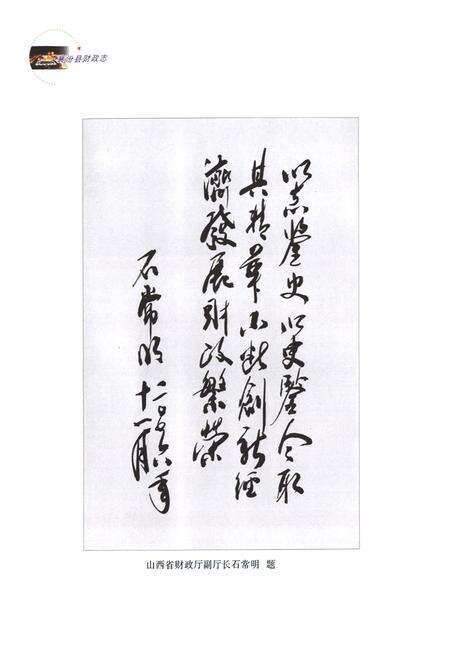 襄汾县财政志
以志鉴史以史鉴今取
其精华不断创新经
济發展财政繁荣
石常明二〇〇六年
十一月
山西省财政厅副厅长石常明 题